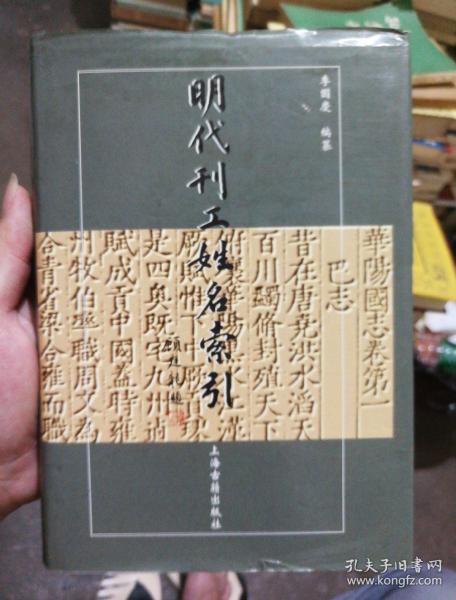 李國慶 編纂
明代刊工姓名索引
顧廷龍題
華陽國志卷第一
巴志
昔在唐堯洪水滔天
百川蠲脩封殖天下
是四奧既宅九州逌
賦成貢中國蓋時雍
州牧伯率職周文為
合青省梁合雍而職
上海古籍出版社
孔夫子旧书网
www.kongfz.com